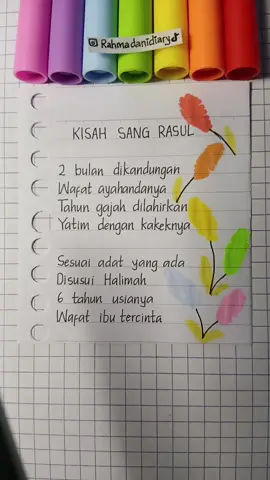 Rahmadanidiary
KISAH SANG RASUL
2 bulan dikandungan
Wafat ayahandanya
Tahun gajah dilahirkan
Yatim dengan kakeknya
Sesuai adat yang ada
Disusui Halimah
6 tahun usianya
Wafat ibu tercinta